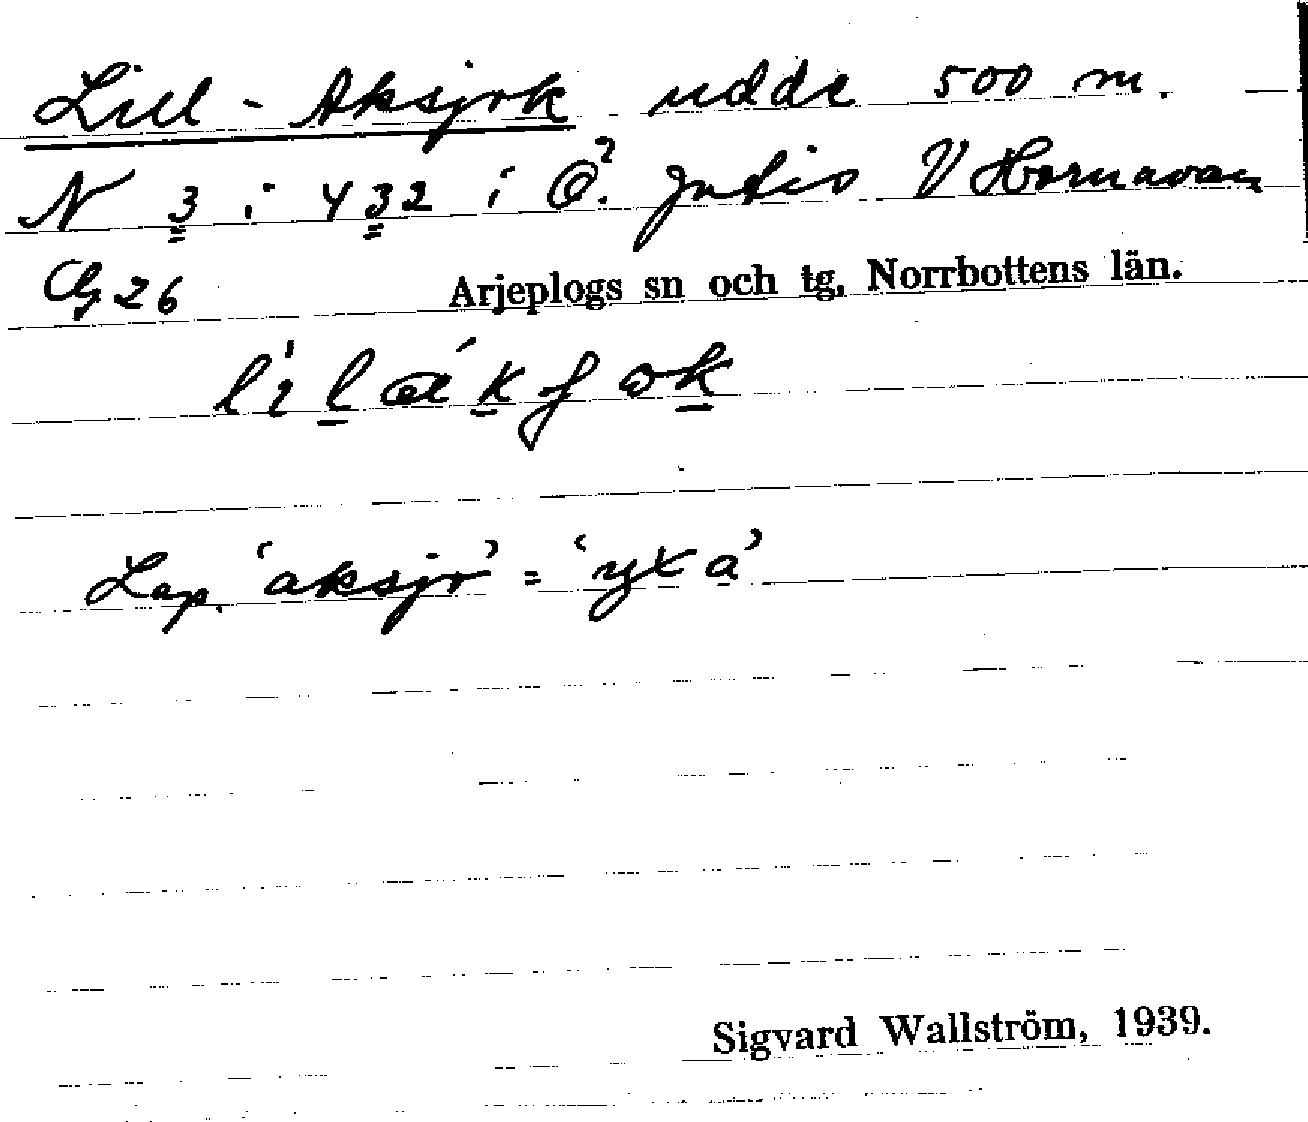 Lill-Aksjok udde 500 m.
N 3 i 432 i Ö. V Hornavan
Cg 26 Arjeplogs sn och tg, Norrbottens län.
Lap. 'aksjo' = 'yxa'
Sigvard Wallström, 1939.